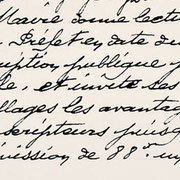 Maire donne lectu
Préfet en date du
ption publique p
le, et invite ses
llages les avantag
scripteurs puisq
mission de 88.